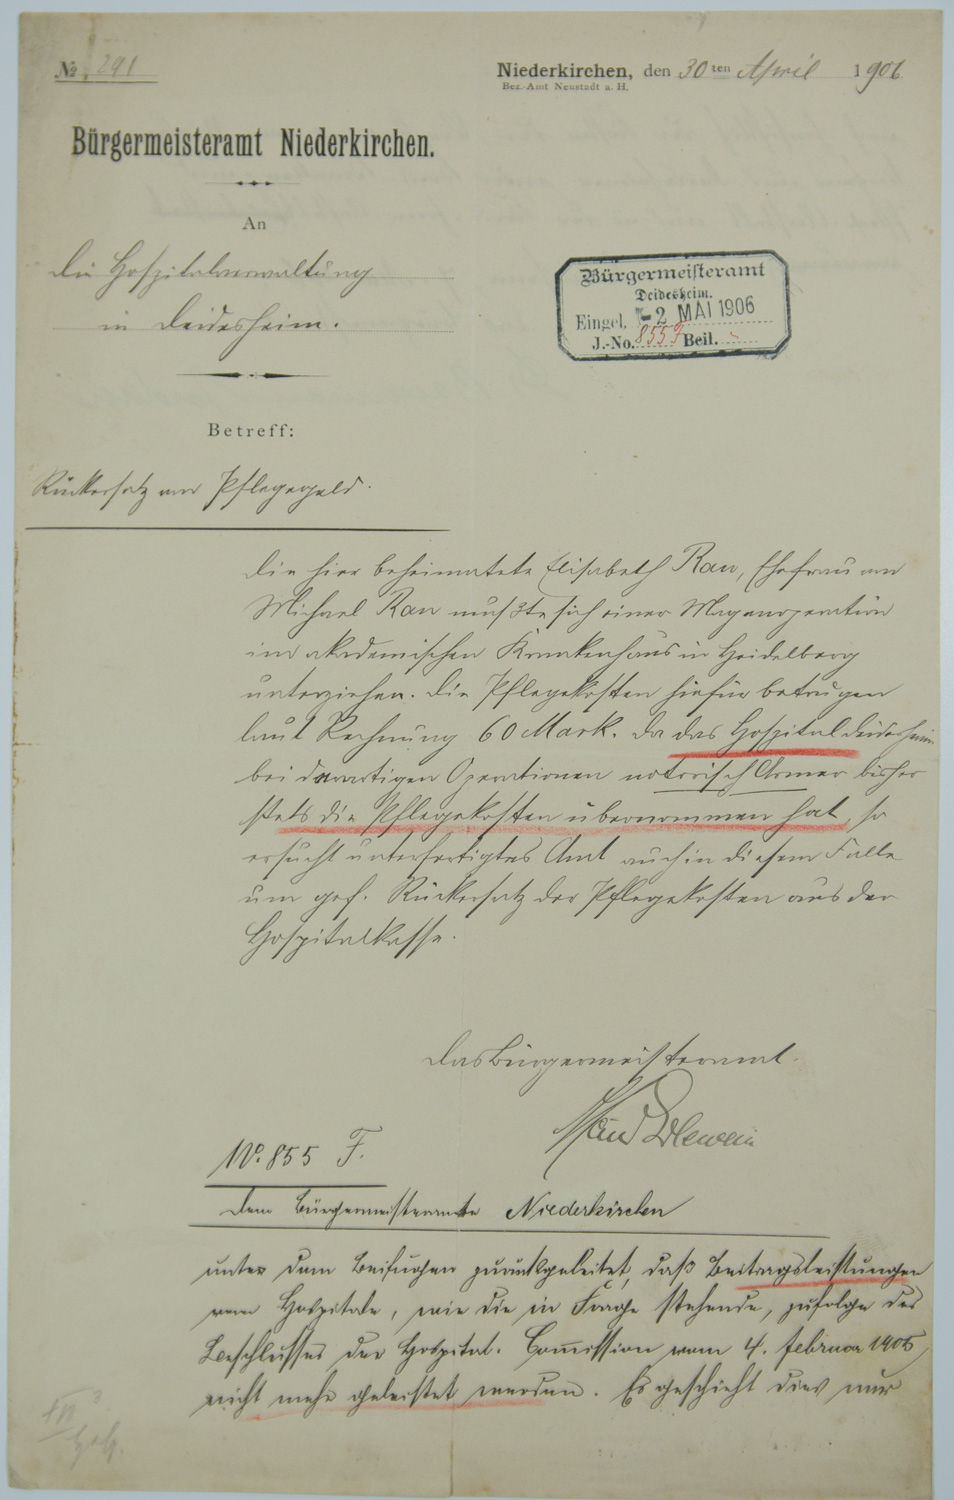 № 291
Niederkirchen, den 30ten April 1906
Bez.-Amt Neustadt a. H.
Bürgermeisteramt Niederkirchen.
An
die Hospitalverwaltung
in Deidesheim.
Bürgermeisteramt
Deidesheim.
Eingel. -2 MAI 1906
J.-No. 855 F Beil.
Betreff:
Rückersatz von Pflegegeld.
Die hier beheimatete Elisabeth Rau, Ehefrau von
Michael Rau mußte sich einer Magenoperation
im akademischen Krankenhaus in Heidelberg
unterziehen. Die Pflegekosten hiefür betrugen
laut Rechnung 60 Mark. Da das Hospital Deidesheim
bei derartigen Operationen notorisch Armer bisher
stets die Pflegekosten übernommen hat, so
ersucht unterfertigtes Amt auch in diesem Falle
um gef. Rückersatz der Pflegekosten aus der
Hospitalkasse.
Das Bürgermeisteramt.
No. 855 F.
Dem Bürgermeisteramte Niederkirchen
unter dem Beifügen zurückgeleitet, daß Beitragsleistungen
vom Hospitale, wie die in Frage stehende, zufolge des
Beschlusses der Hospital-Commission vom 4. Februar 1905
nicht mehr geleistet werden. Es geschieht dies nur